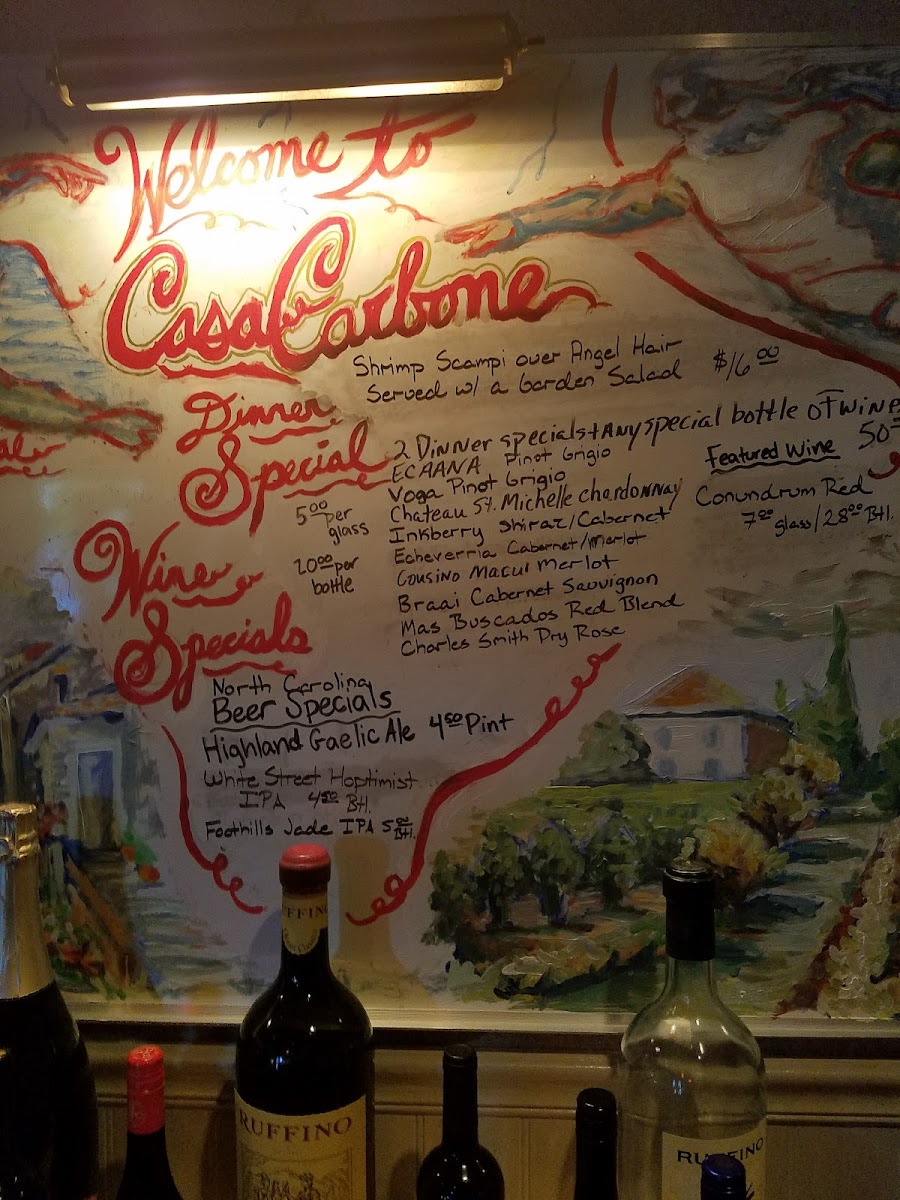 Welcome to
Casa Carbone
Dinner
Special
Shrimp Scampi over Angel Hair
Served w/ a Garden Salad
$16.00
2 Dinner specials + Any special bottle of wine
50
ECAANA Pinot Grigio
Voga Pinot Grigio
Chateau St. Michelle chardonnay
Inkberry Shiraz/Cabernet
Echeverria Cabernet/Merlot
Cousino Macul Merlot
Braai Cabernet Sauvignon
Mas Buscados Red Blend
Charles Smith Dry Rose
Featured Wine
Conundrum Red
7.00 glass/28.00 Btl.
Wine
Specials
5.00 per
glass
20.00 per
bottle
North Carolina
Beer Specials
Highland Gaelic Ale 4.50 Pint
White Street Hoptimist
IPA 4.50 Btl.
Foothills Jade IPA 5.00 Btl.
RUFFINO